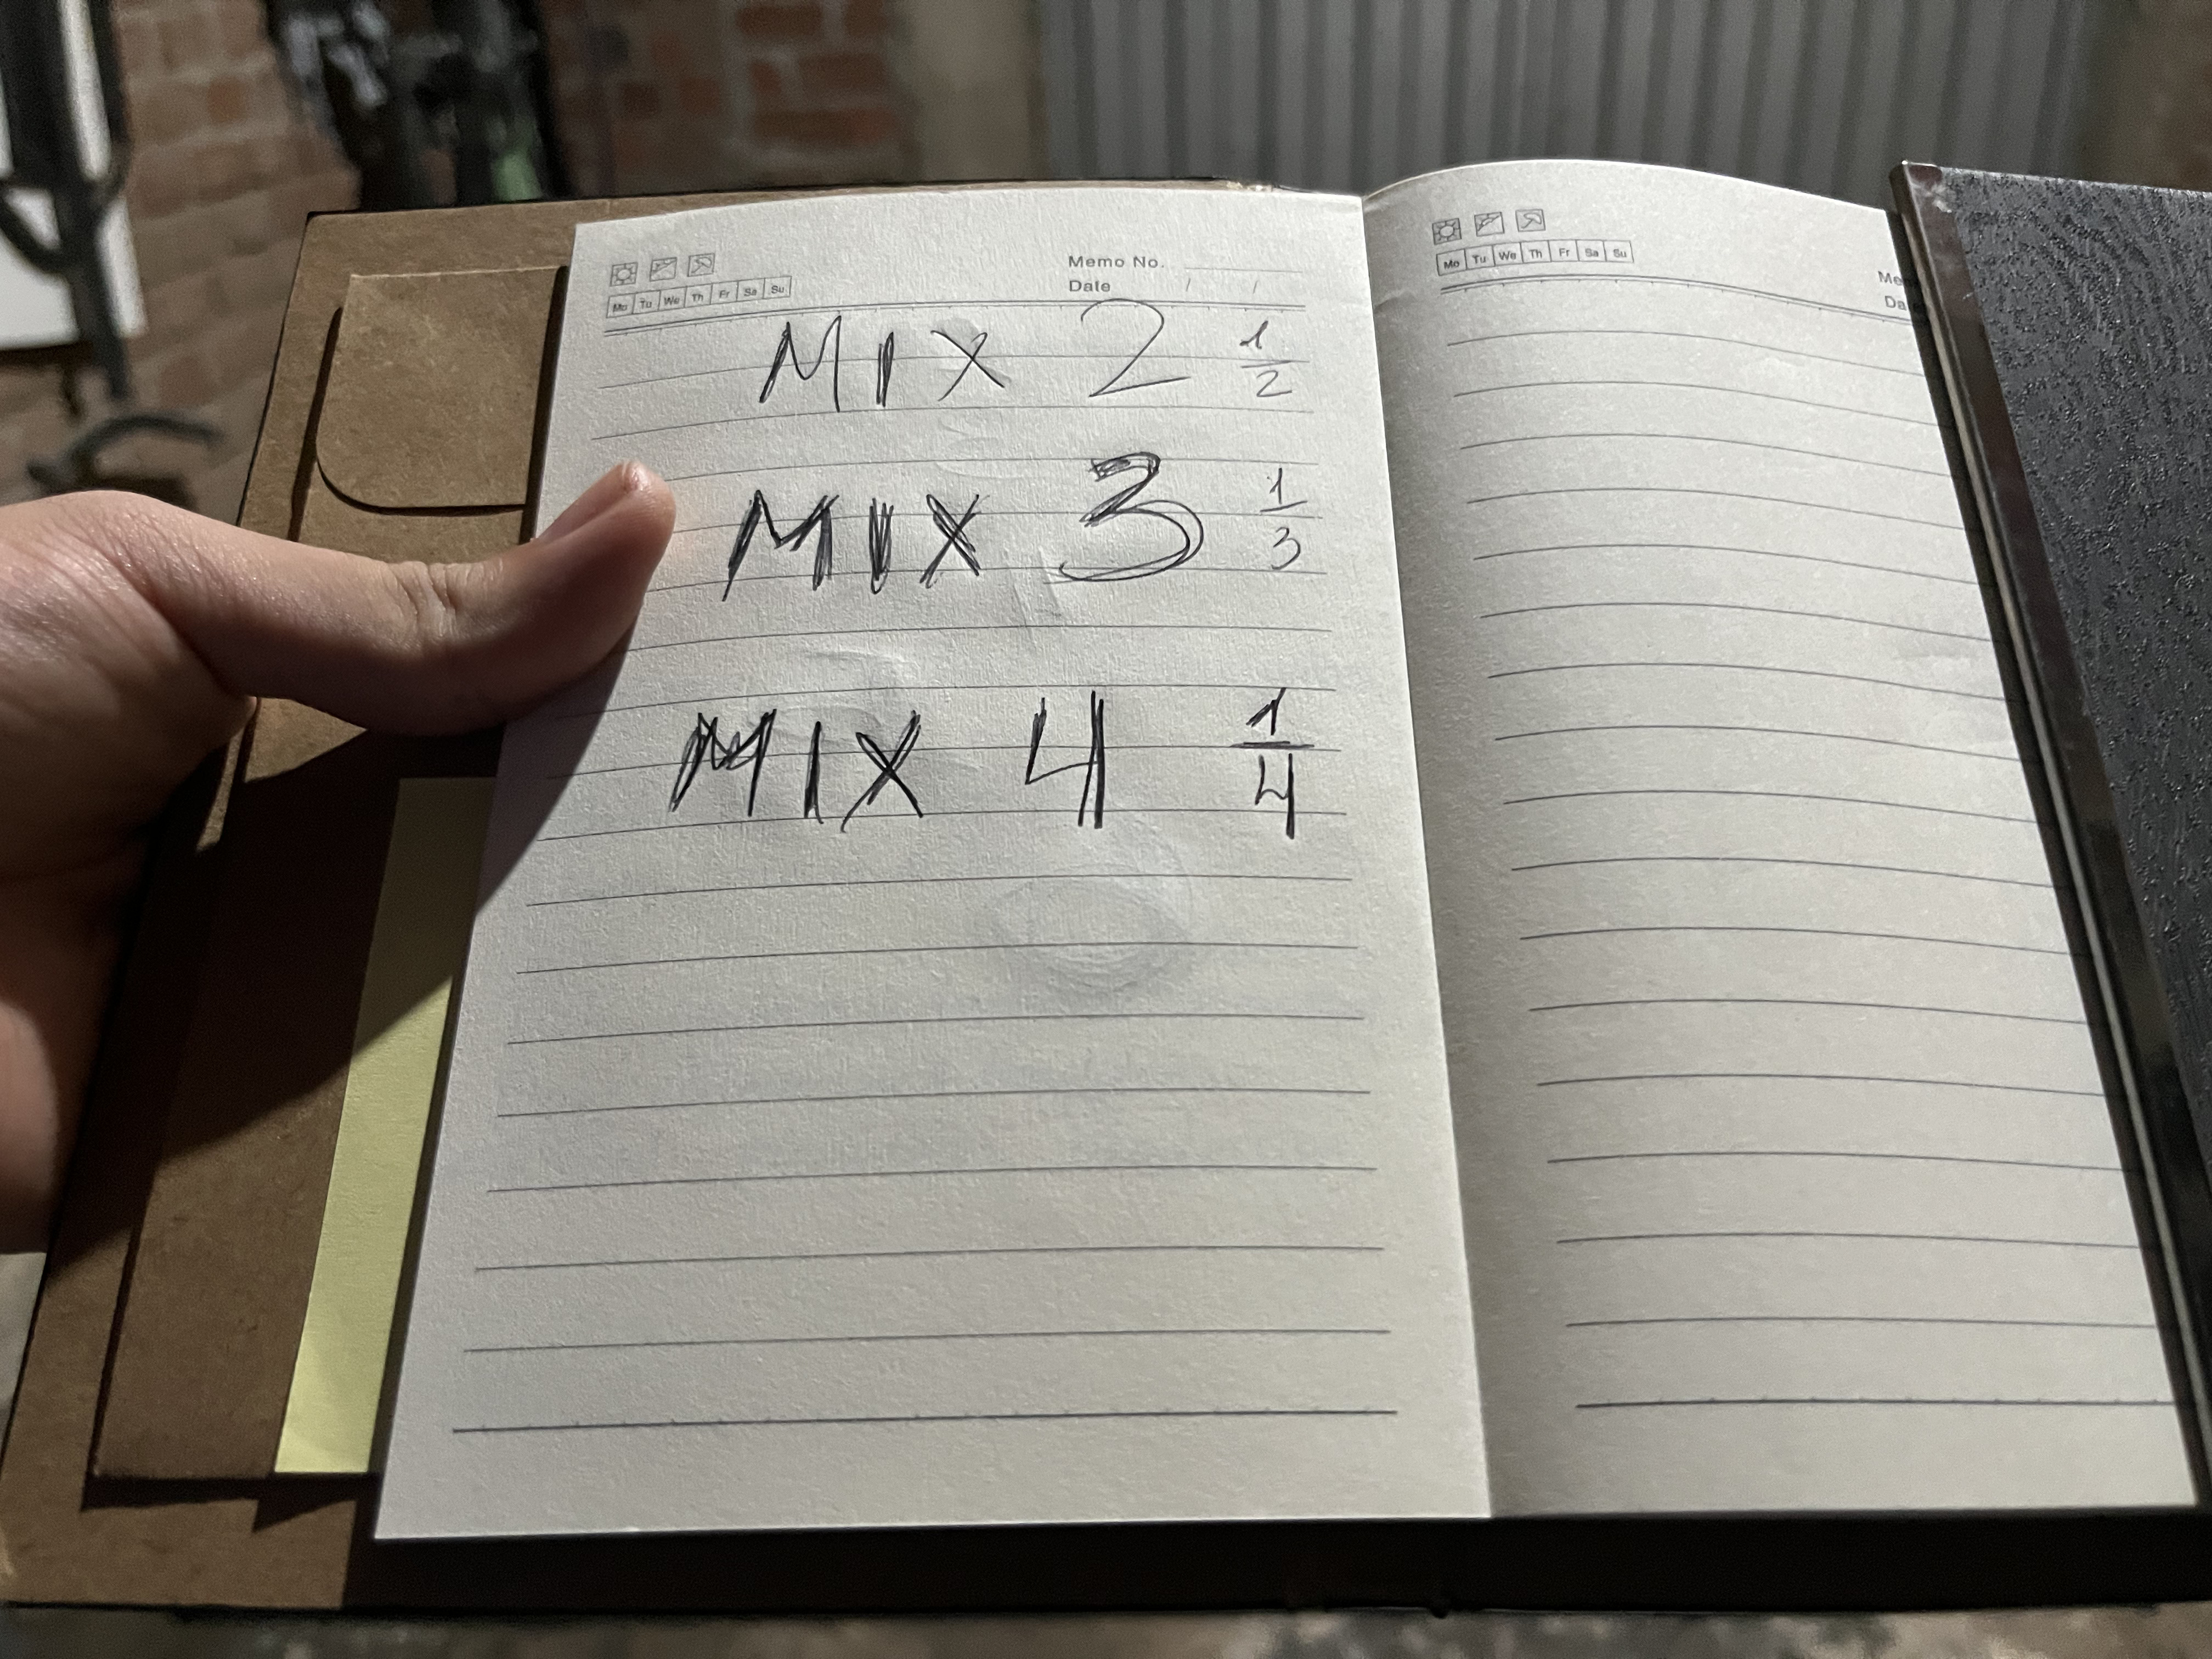 Memo No.
Mo Tu We Th Fr Sa Su
Date / /
MIX 2 1/2
MIX 3 1/3
MIX 4 1/4
Mo Tu We Th Fr Sa Su
Me
Da